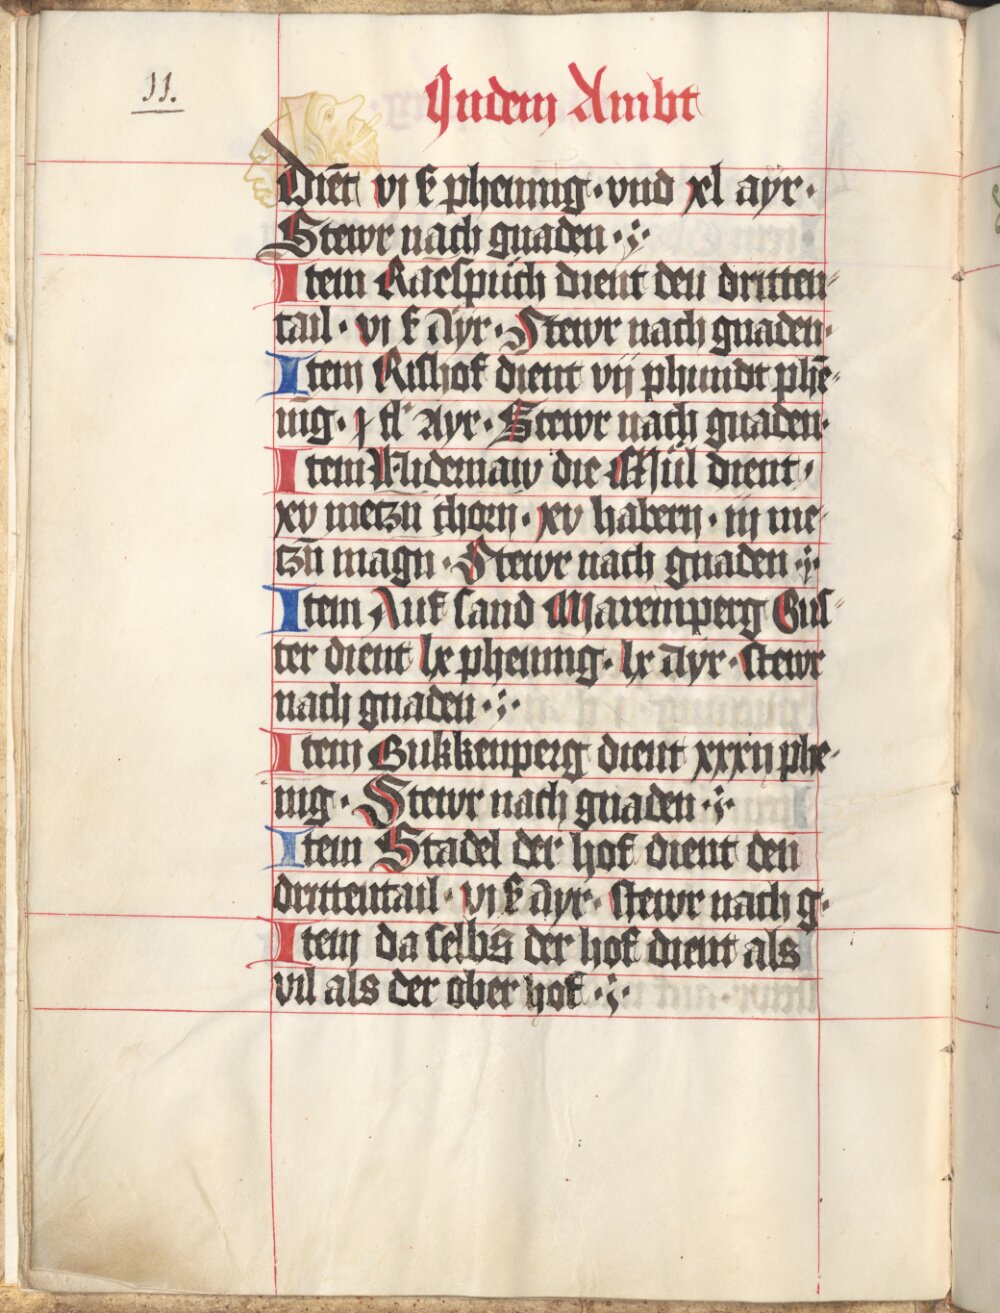 11.
Indem Ambt
Dient vj ß phening · vnd xl ayr ·
Stewr nach gnaden ·
Item Raespüch dient den dritten
tail · vj ß Ayr · Stewr nach gnaden ·
Item Rishof dient vij phundt phe-
nig · j tl Ayr · Stewr nach gnaden ·
Item Nidernaw die Mül dient
xv metzn chorn · xv habern · iij me-
tzn magn · Stewr nach gnaden ·
Item Auf sand Maremperg Gus-
ter dient lx phening · lx ayr · stewr
nach gnaden ·
Item Gukkenperg dient xxxij phe-
nig · Stewr nach gnaden ·
Item Stadel der hof dient den
drittentail · vj ß Ayr · stewr nach g ·
Item da selbs der hof dient als
vil als der ober hof ·